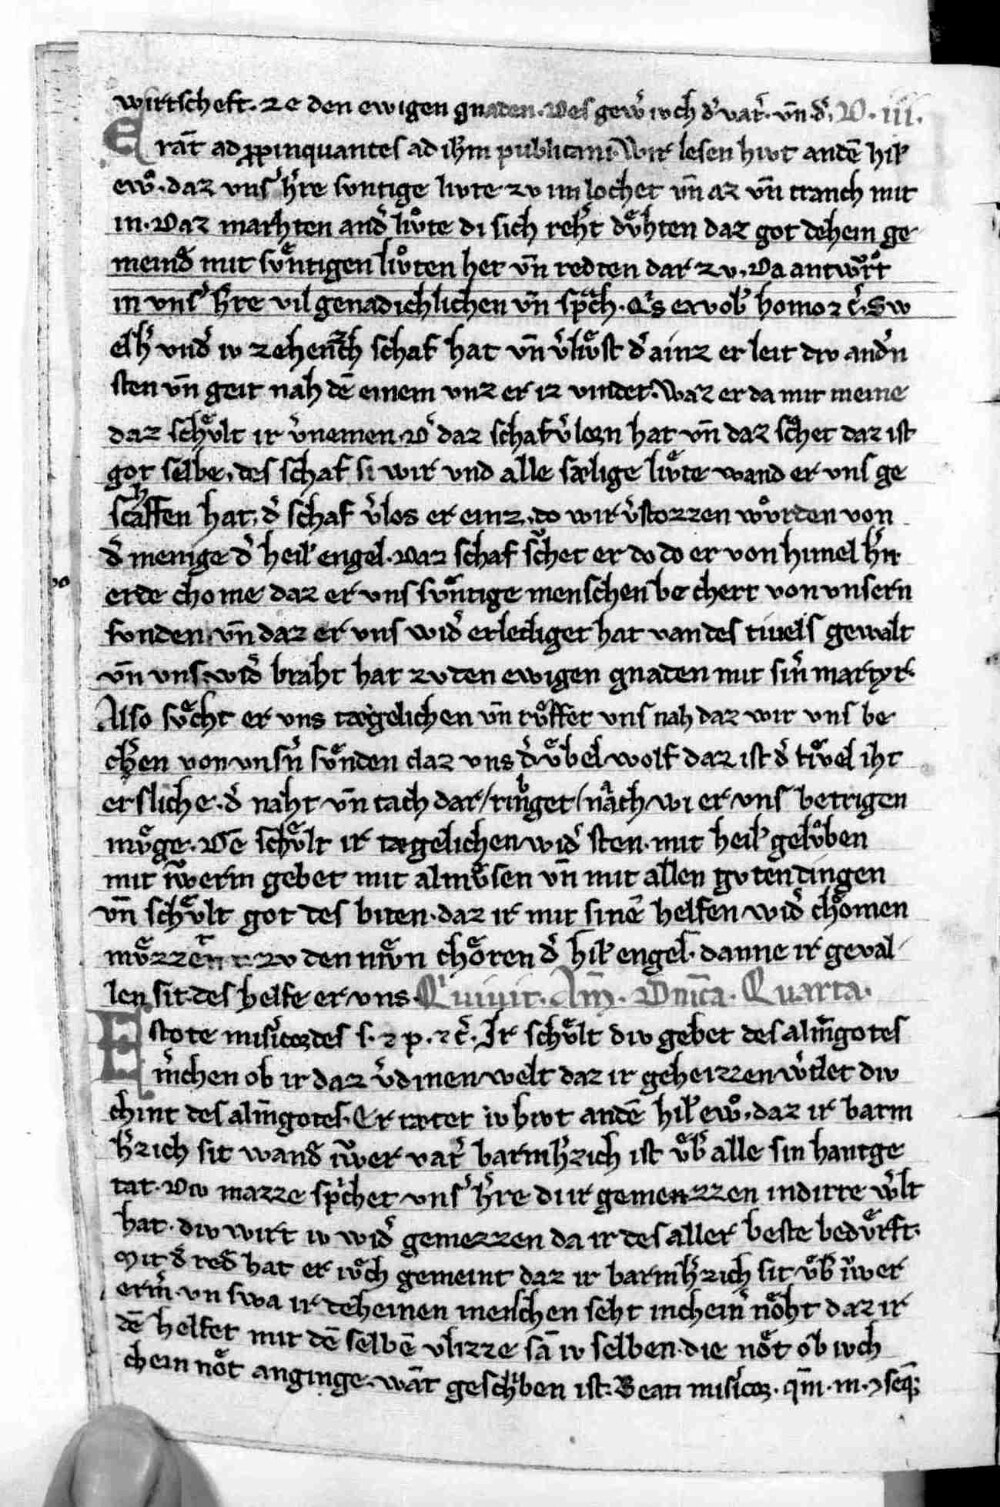 wirtscheft. ze den ewigen gnaden. Des gew̉ iuch d̉ vat̉. vn̄ d̉. D. iii.
Erāt ad ꝓpinquantes ad ih̄m publicani. Wir lesen hiut an dē hil̉
ewͦ. daz vns̉ h̉re svntige livte zv im lochet vn̄ az vn̄ tranch mit
in. Daz mahten and̉ livͦte di sich reht dvͤhten daz got dehein ge
meind̉ mit svͤntigen livͦten het vn̄ redten dar zv. Da antwͦrt
in vns̉ h̉re vil genadichlichen vn̄ sp̄ch. Q̇s ex vob̉ homo ⁊ c̉. Sw
elh̉ vnd̉ iv zehenzch schaf hat vn̄ v̉livͤst d̉ ainz er leit div and̉n
sten vn̄ geit nah dē einem vnz er iz vindet. Waz er da mit meine
daz schvͤlt ir v̉nemen. D̉ daz schaf v̉lorn hat vn̄ daz sͦchet daz ist
got selbe. des schaf si wir vnd alle sælige livͤte wand er vns ge
schaffen hat. d̉ schaf v̉los er einz. do wir v̉stozzen wͦrden von
d̉ menige d̉ heil̉ engel. Daz schaf sͦchet er do do er von himel h̉n
erde chome daz er vns svͤntige menschen bechert von vnsern
sunden. vn̄ daz er vns wid̉ erlediget hat van des tiuels gewalt
vn̄ vns wid̉ braht hat zv den ewigen gnaden mit sin̉ martyr.
Also svͦcht er vns tægelichen vn̄ rvͦffet vns nah daz wir vns be
ch̉en von vnsn̉ svͤnden daz vns d̉ vͤbel wolf daz ist d̉ tivͤel iht
erslich̉e. d̉ naht vn̄ tach dar ringet nâch wi er vns betrigen
mvͤge. De schvͤlt ir tægelichen wid̉ sten. mit heil̉ gelͦben
mit iw̉erm gebet mit almͦsen vn̄ mit allen gvten dingen
vn̄ schvͤlt got des biten. daz ir mit sinē helfen wid̉ chͦmen
mvͤzzent zv den nivͤn chͤren d̉ hil̉ engel. danne ir geval
len sit. des helfe er vns. Quiuit. Am̄. Dn̄ica. Quarta.
Estote misic̉ordes s. ⁊ p. ⁊ c̉. Ir schvͤlt div gebet des alm̄gotes
m̉chen ob ir daz v̉dinen welt daz ir geheizzen w̉det div
chint des alm̄gotes. Er tætet iv hivt an dē hil̉ ewͦ. daz ir barm
h̉zich sit wand̉ iw̉er vat̉ barmh̉zich ist vͤb̉ alle sin hantge
tat. Div mazze sp̉chet vns̉ h̉re di ir gemenzzen in dirre w̉lt
hat. div wirt iv wid̉ gemezzen da ir des aller beste bedvͤrft.
Mit d̉ red̉ hat er ivͦch gemeint daz ir barmh̉zich sit vͤb̉ iw̉er
erm̉. vn swa ir deheinen menschen seht in chein̉ nͦht daz ir
dē helfet mit dē selbē vlizze sā iv selben die nͤt ob ivch
chein nͦt anginge. wāt gesch̉iben ist. Beati misic̉orꝫ. qm̄. m. ⁊ seq̄ꝫ